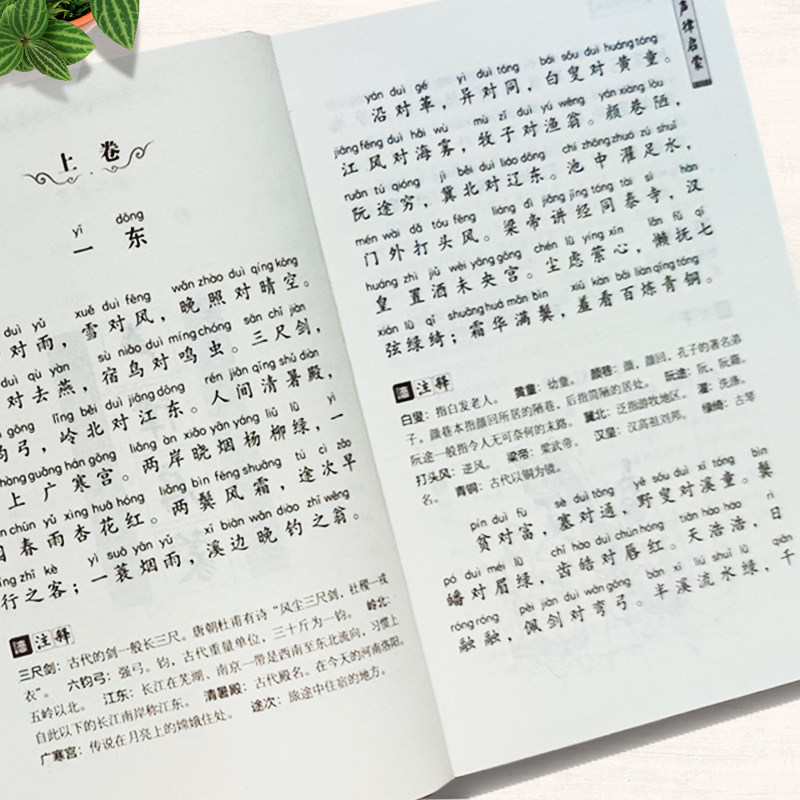 上 卷
yī dōng
一 东
duì yǔ xuě duì fēng wǎn zhào duì qíng kōng
对雨，雪对风，晚照对晴空。
duì qù yàn sù niǎo duì míng chóng sān chǐ jiàn
对去燕，宿鸟对鸣虫。三尺剑，
gōng lǐng běi duì jiāng dōng rén jiān qīng shǔ diàn
弓，岭北对江东。人间清暑殿，
shàng guǎng hán gōng liǎng àn xiǎo yān yáng liǔ lǜ yì
上广寒宫。两岸晓烟杨柳绿，一
chūn yǔ xìng huā hóng liǎng bìn fēng shuāng tú cì zǎo
春雨杏花红。两鬓风霜，途次早
xíng zhī kè yì suō yān yǔ xī biān wǎn diào zhī wēng
行之客；一蓑烟雨，溪边晚钓之翁。
注释
三尺剑：古代的剑一般长三尺。唐朝杜甫有诗“风尘三尺剑，社稷一戎
衣”。 六钧弓：强弓。钧，古代重量单位，三十斤为一钧。 岭北：
五岭以北。 江东：长江在芜湖、南京一带是西南至东北流向，习惯上
自此以下的长江南岸称江东。 清暑殿：古代殿名。在今天的河南洛阳。
广寒宫：传说在月亮上的嫦娥住处。 途次：旅途中住宿的地方。
声律启蒙
yán duì gé yì duì tóng bái sǒu duì huáng tóng
沿对革，异对同，白叟对黄童。
jiāng fēng duì hǎi wù mù zǐ duì yú wēng yán xiàng lòu
江风对海雾，牧子对渔翁。颜巷陋，
ruǎn tú qióng jì běi duì liáo dōng chí zhōng zhuó zú shuǐ
阮途穷，冀北对辽东。池中濯足水，
mén wài dǎ tóu fēng liáng dì jiǎng jīng tóng tài sì hàn
门外打头风。梁帝讲经同泰寺，汉
huáng zhì jiǔ wèi yāng gōng chén lǜ yíng xīn lǎn fǔ qī
皇置酒未央宫。尘虑萦心，懒抚七
xián lǜ qǐ shuāng huá mǎn bìn xiū kàn bǎi liàn qīng tóng
弦绿绮；霜华满鬓，羞看百炼青铜。
注释
白叟：指白发老人。 黄童：幼童。 颜巷：颜，颜回，孔子的著名弟
子。颜巷本指颜回所居的陋巷，后指简陋的居处。 阮途：阮，阮籍。
阮途一般指令人无可奈何的末路。 冀北：泛指游牧地区。 濯：洗涤。
打头风：逆风。 梁帝：梁武帝。 汉皇：汉高祖刘邦。 绿绮：古琴
名。 青铜：古代以铜为镜。
pín duì fù sè duì tōng yě sǒu duì xī tóng bìn
贫对富，塞对通，野叟对溪童。鬓
pó duì méi lǜ chǐ hào duì chún hóng tiān hào hào rì
皤对眉绿，齿皓对唇红。天浩浩，日
róng róng pèi jiàn duì wān gōng bàn xī liú shuǐ lǜ qiān
融融，佩剑对弯弓。半溪流水绿，千